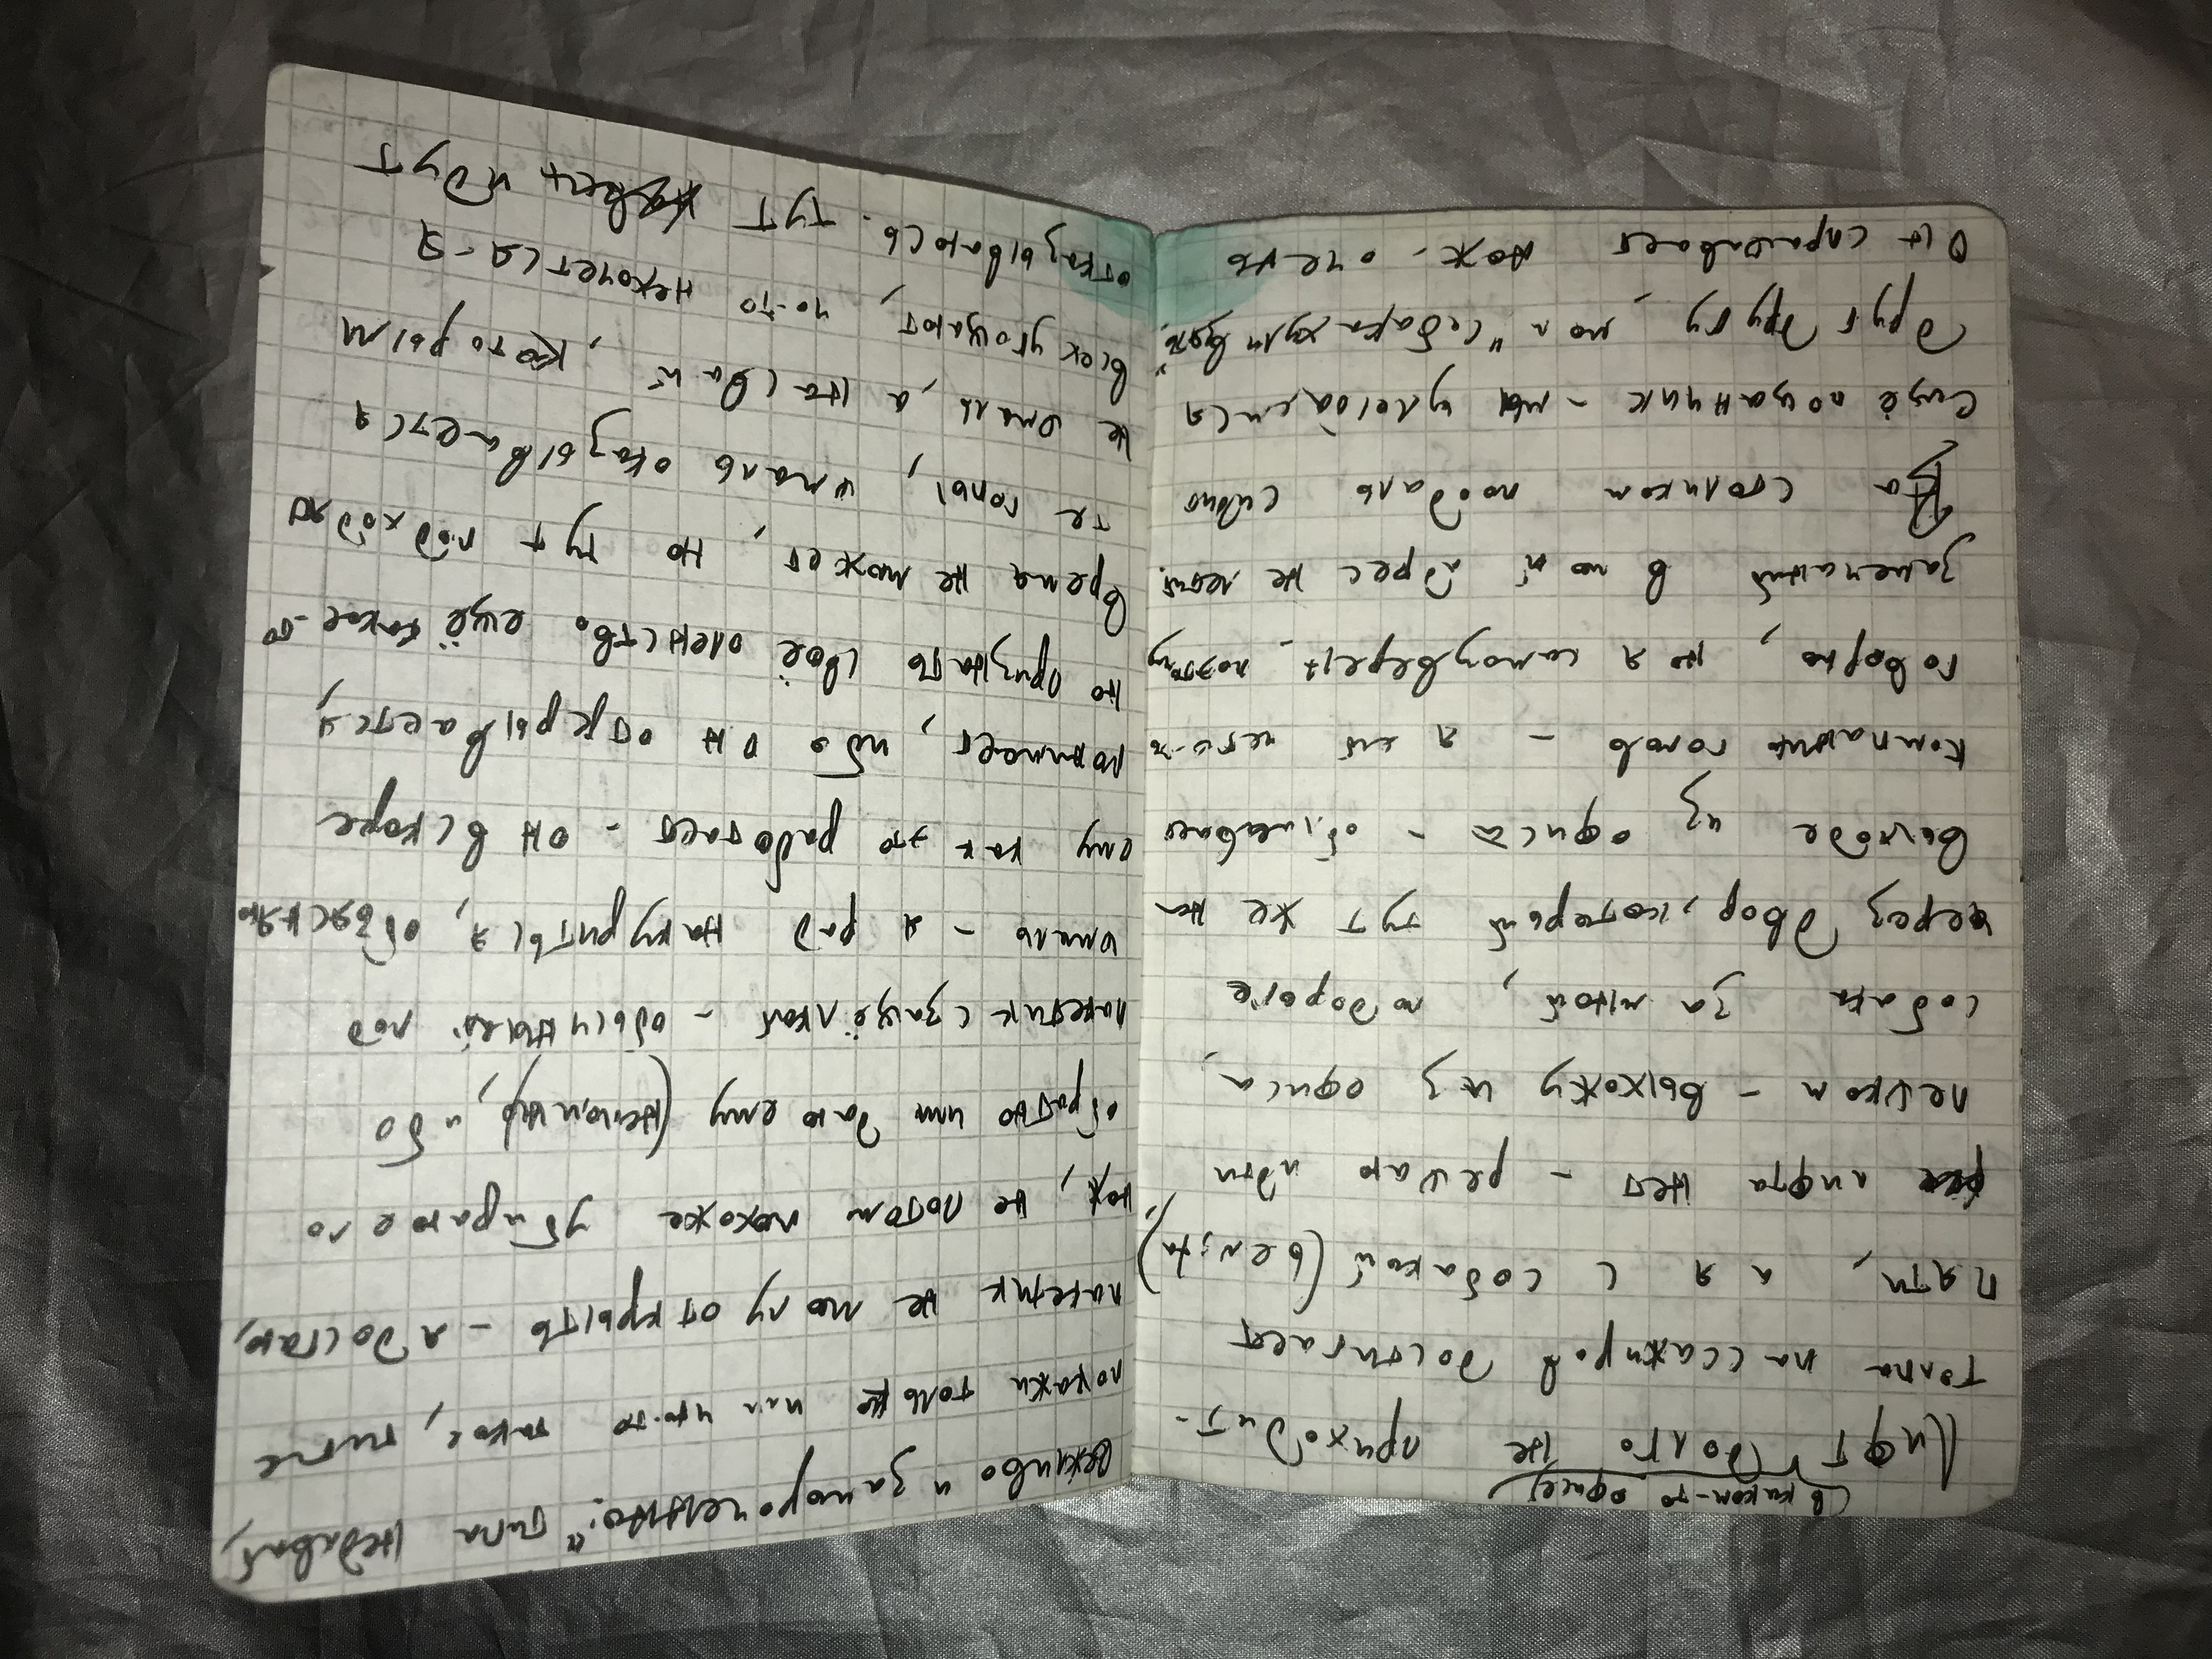 (в каком-то офисе)
Лифт долго не приходит-
толпа пассажиров достигает
пяти, а я с собакой (венуta),
лифта нет - решаю идти
пешком - выхожу из офиса,
собака за мной, по дороге
через двор, который тут же на
выходе из офиса -
компанию гопов - я ей чего-то
говорю, но я самоуверен, поэтому
замечаний в мой адрес не летит.
За столиком поодаль сидит
ещё пощанчик - мы улыбаемся
друг другу, мол "собака хули взять".
Он спрашивает нож - очень
вежливо и замороченно:" типа недавай,
покажи только или что-то такое, типа
пакетик не могу открыть - я достаю,
нож, не потом похоже убираю его
обратно или даю ему (непомню), ибо
пакетик с защёлкой - обычный под
шмаль - я рад накуриться, объясняю
ему как это работает - он вскоре
понимает, ибо он открывается,
но признать своё оленство ещё какое-то
время не может, но тут подходят
те гопы, шмаль оказывается
не шмаль, а насвай, которым
всех угощают, чо-то нехочется - я
отказываюсь. тут идут